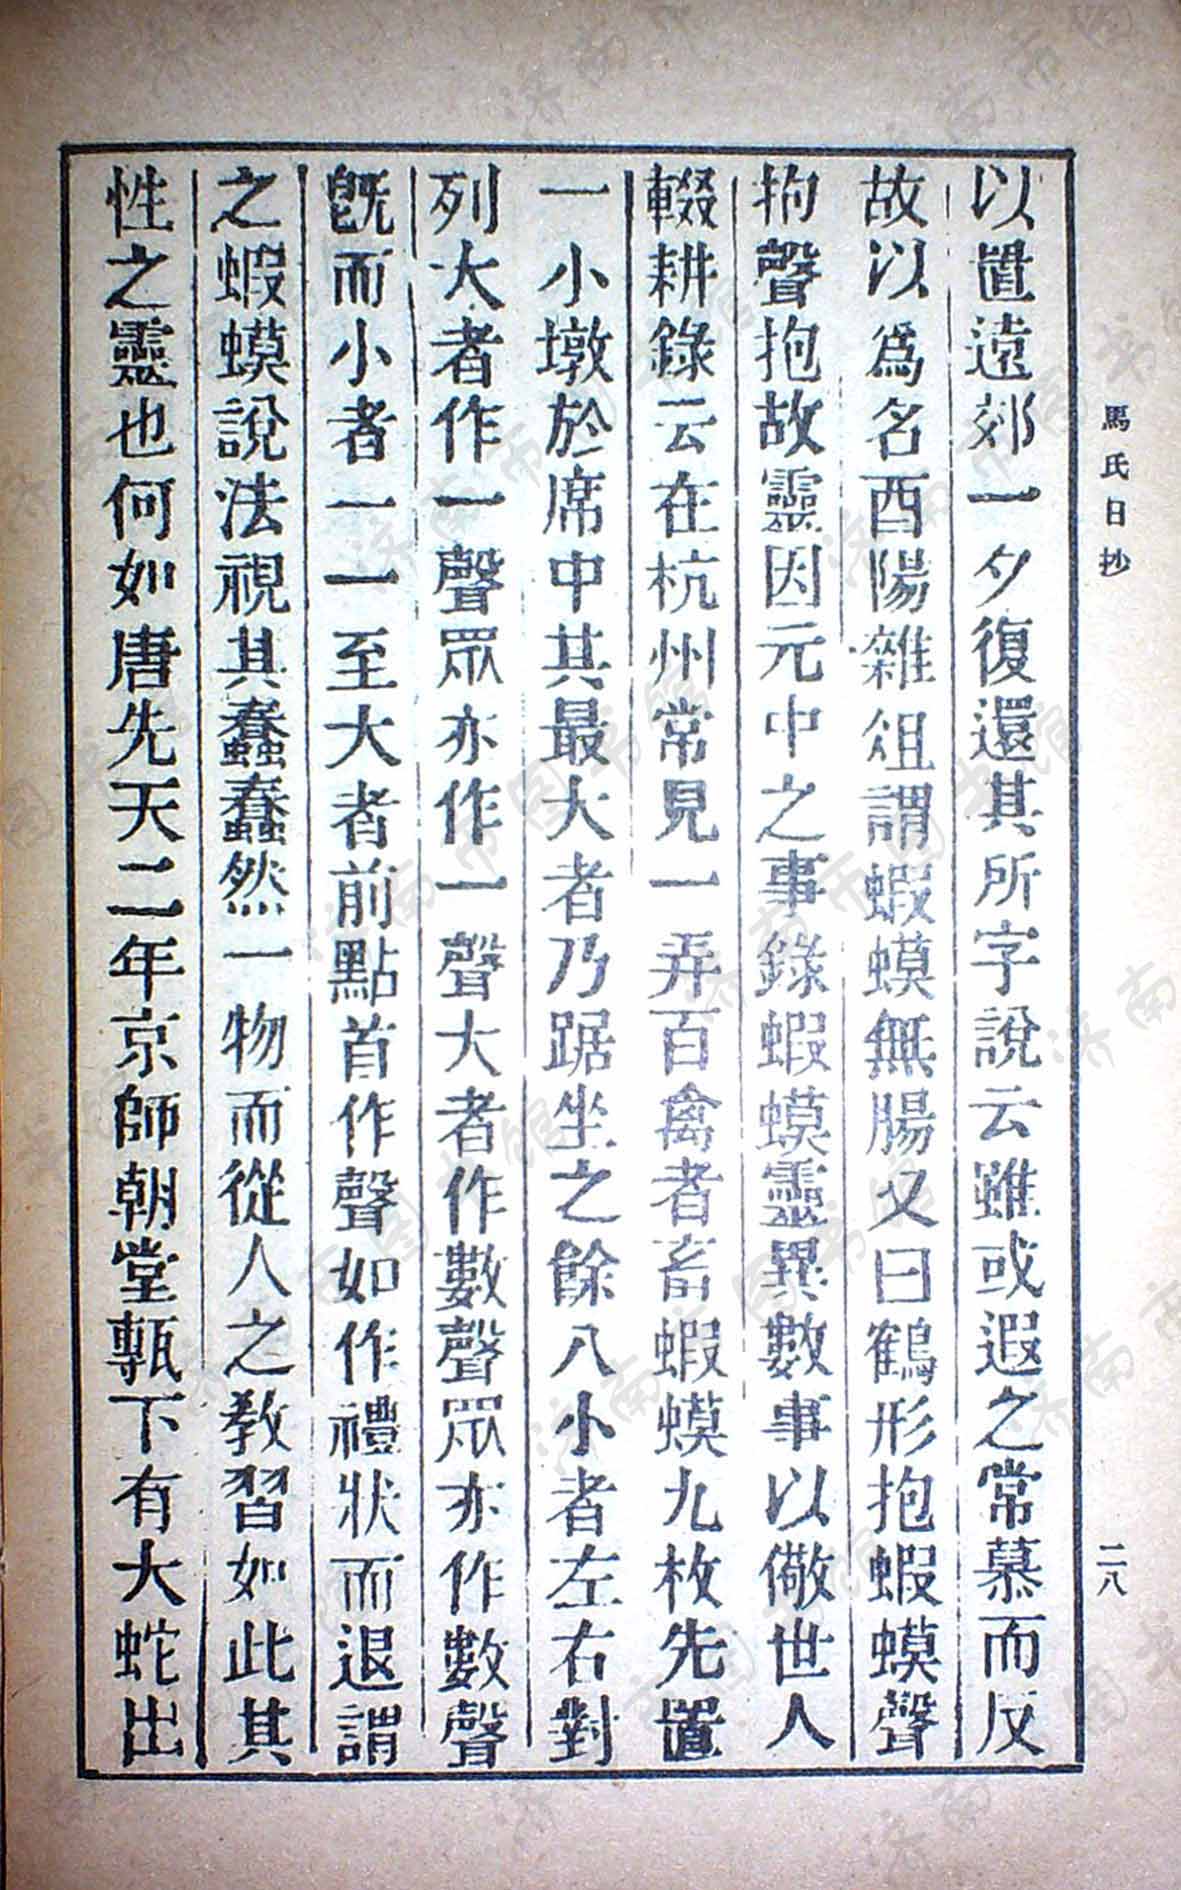 馬氏日抄
二八
以置遠郊一夕復還其所字說云雖或遐之常慕而反
故以爲名酉陽雜俎謂蝦蟆無腸又曰鶴形抱蝦蟆聲
抱聲抱故靈因元中之事錄蝦蟆靈異數事以儆世人
輟耕錄云在杭州常見一弄百禽者畜蝦蟆九枚先置
一小墩於席中其最大者乃踞坐之餘八小者左右對
列大者作一聲眾亦作一聲大者作數聲眾亦作數聲
旣而小者一一至大者前點首作聲如作禮狀而退謂
之蝦蟆說法視其蠢蠢然一物而從人之教習如此其
性之靈也何如唐先天二年京師朝堂甎下有大蛇出